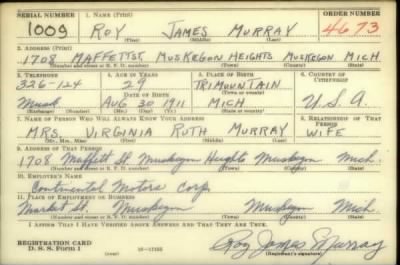 SERIAL NUMBER 1. NAME (Print) ORDER NUMBER
1009 ROY JAMES MURRAY 4673
(First) (Middle) (Last)
2. ADDRESS (Print)
1708 MAFFETT ST. MUSKEGON HEIGHTS MUSKEGON MICH.
(Number and street or R. F. D. number) (Town) (County) (State)
3. TELEPHONE 4. AGE IN YEARS 5. PLACE OF BIRTH 6. COUNTRY OF CITIZENSHIP
326-124 29 TRIMOUNTAIN
DATE OF BIRTH (Town or county)
Musk AUG 30 1911 MICH U.S.A.
(Exchange) (Number) (Mo.) (Day) (Yr.) (State or country)
7. NAME OF PERSON WHO WILL ALWAYS KNOW YOUR ADDRESS 8. RELATIONSHIP OF THAT PERSON
MRS. VIRGINIA RUTH MURRAY WIFE
(Mr., Mrs., Miss) (First) (Middle) (Last)
9. ADDRESS OF THAT PERSON
1708 Maffett St. Muskegon Heights Muskegon Mich.
(Number and street or R. F. D. number) (Town) (County) (State)
10. EMPLOYER'S NAME
Continental Motors Corp.
11. PLACE OF EMPLOYMENT OR BUSINESS
Market St. Muskegon Muskegon Mich.
(Number and street or R. F. D. number) (Town) (County) (State)
I AFFIRM THAT I HAVE VERIFIED ABOVE ANSWERS AND THAT THEY ARE TRUE.
REGISTRATION CARD
D. S. S. FORM 1 (over) Roy James Murray
(Registrant's signature)